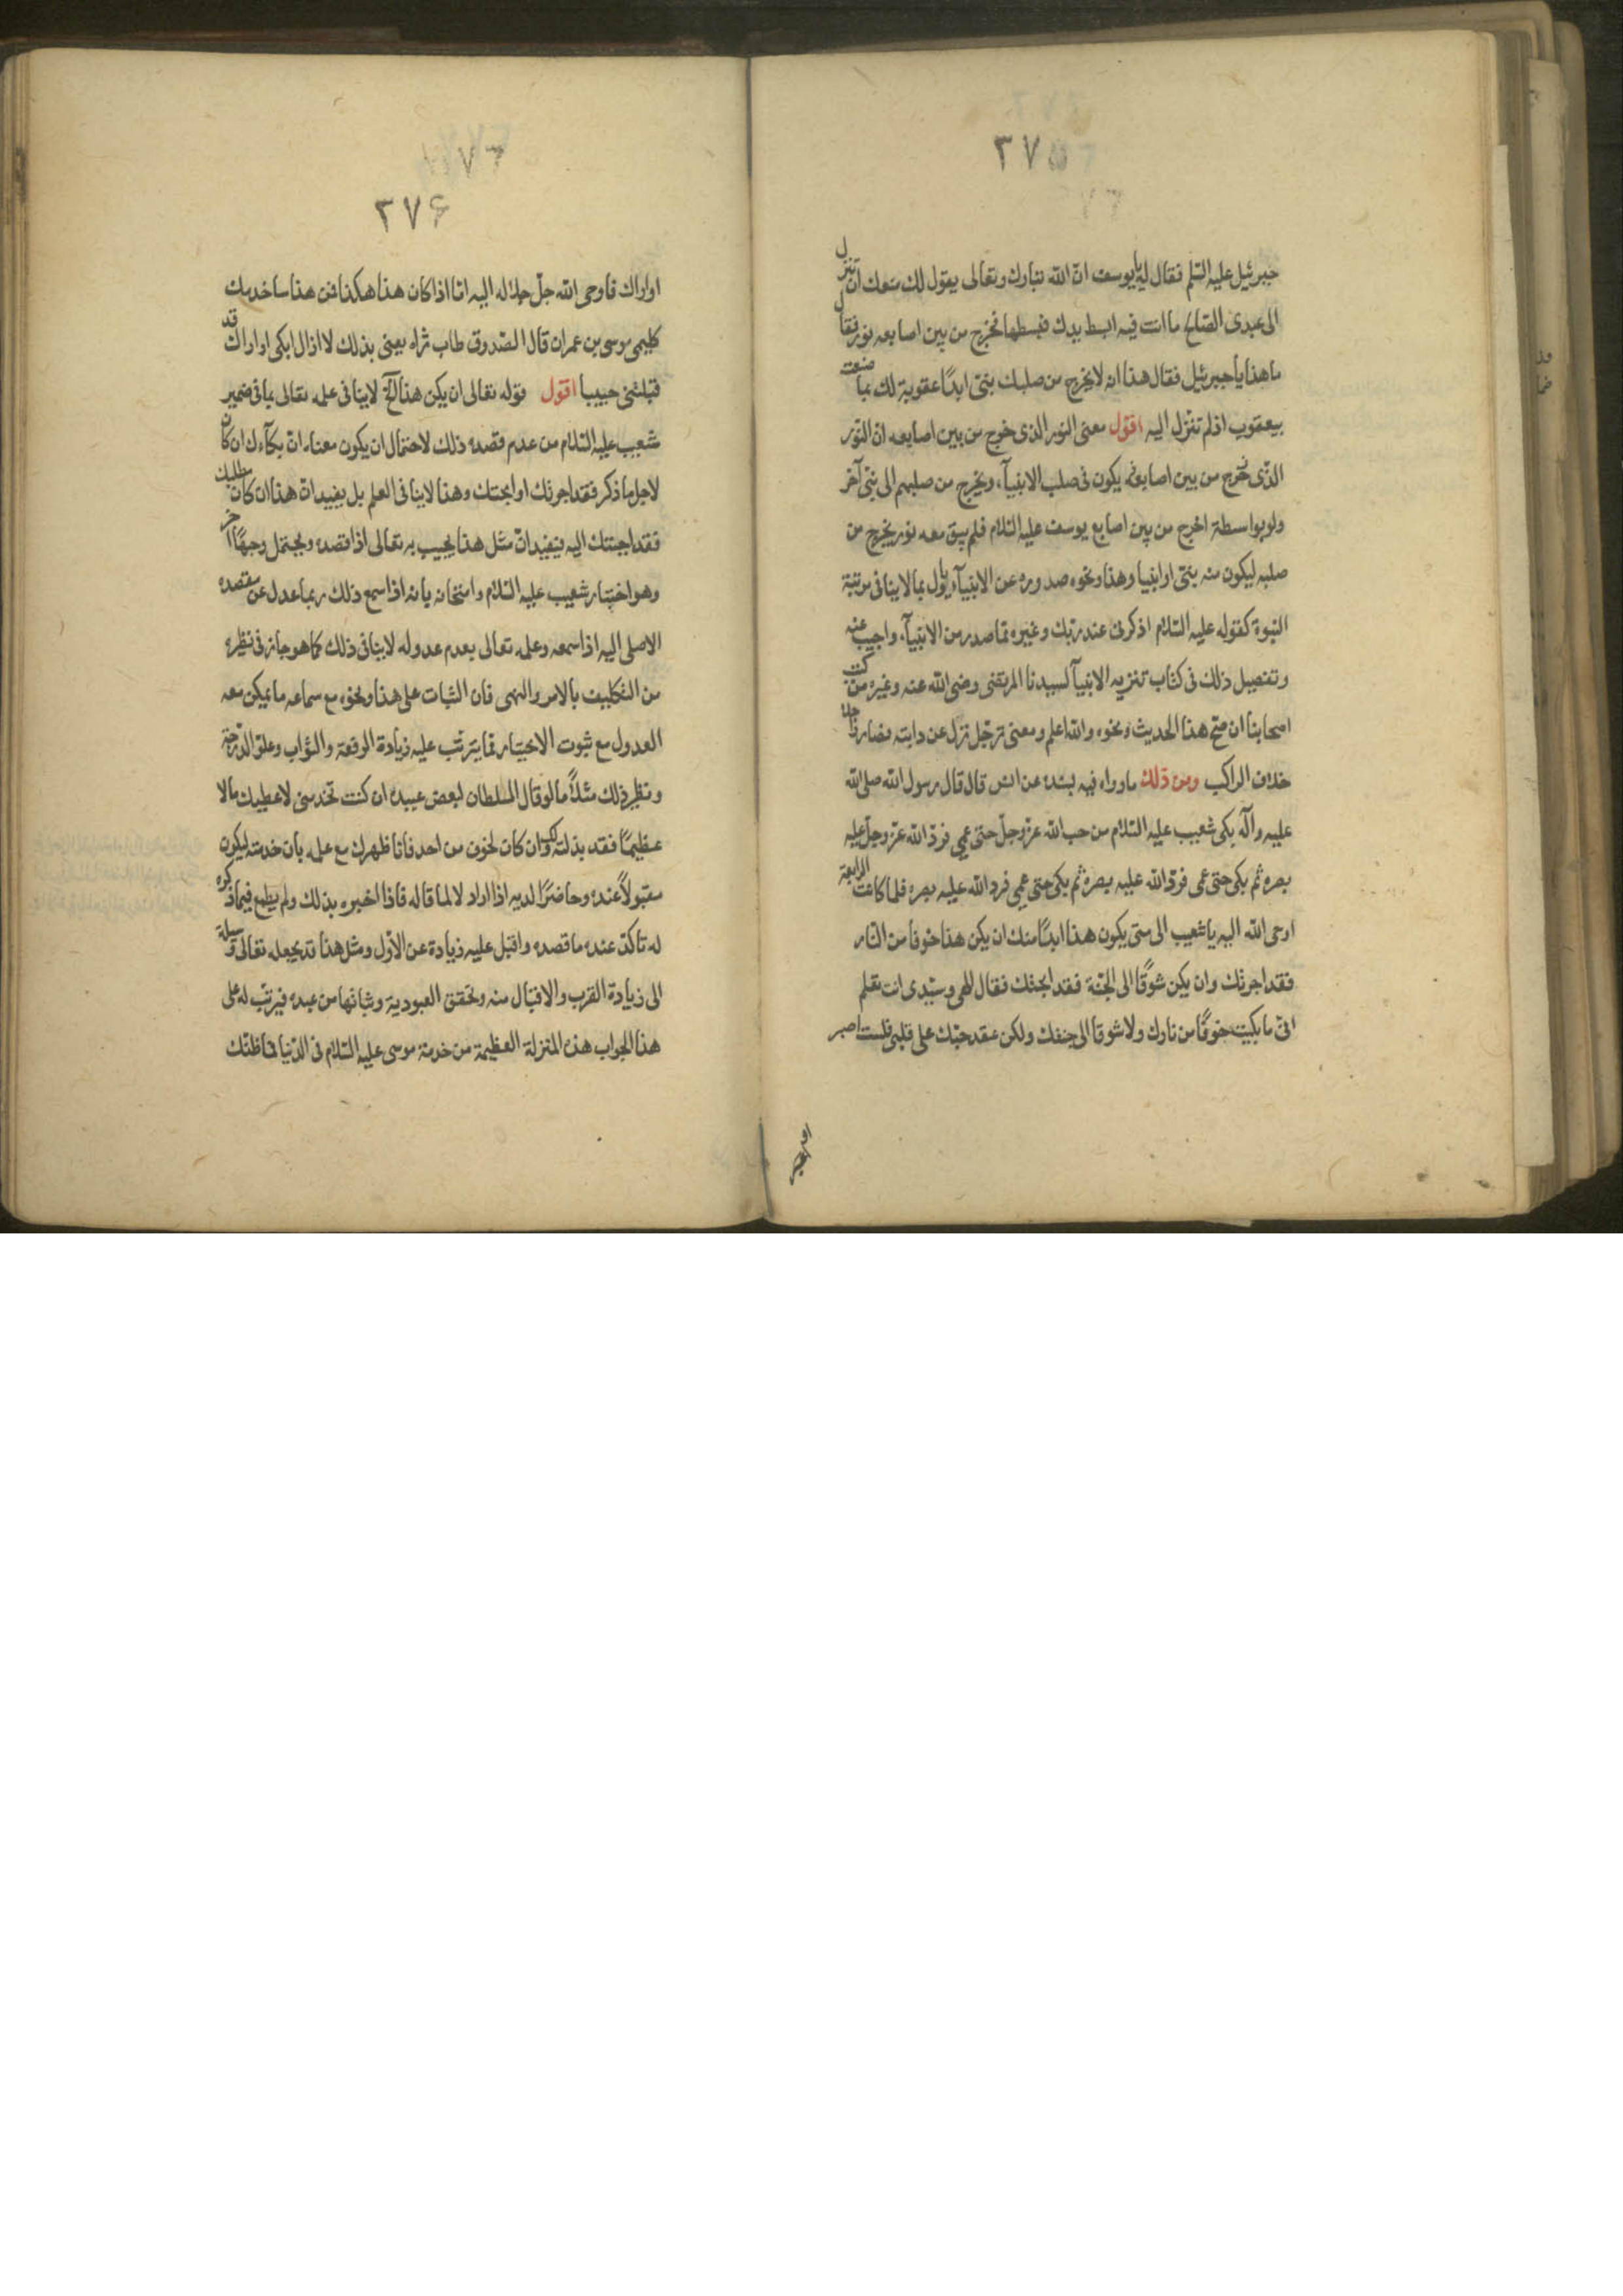 ٣٧٥
جبرئيل عليه السلم فقال له يا يوسف ان الله تبارك وتعالى يقول لك منعك ان تنزل
الى عبدى الصالح ما انت فيه ابسط يدك فبسطها فخرج من بين اصابعه نور فقال
ما هذا يا جبرئيل فقال هذا انه لا يخرج من صلبك نبى ابدًا عقوبة لك بما صنعت
بيعقوب اذ لم تنزل اليه اقول معنى النور الذى خرج من بين اصابعه ان النور
الذى خرج من بين اصابعه يكون فى صلب الانبيآء ويخرج من صلبهم الى نبى آخر
ولو بواسطة اخرج من بين اصابع يوسف عليه السلام فلم يبق معه نور يخرج من
صلبه ليكون منه نبى او انبيا وهذا ونحوه صدوره عن الانبيآء ياول بما لا ينافى مرتبة
النبوة كقوله عليه السلام اذكرنى عند ربك وغيره مما صدر من الانبيآء واجيب عنه
وتفصيل ذلك فى كتاب تنزيه الانبيآ لسيدنا المرتضى رضى الله عنه وغيره من كتب
اصحابنا ان صح هذا الحديث ونحوه والله اعلم ومعنى ترجل نزل عن دابته فصار راجلا
خلاف الراكب ومن ذلك ما رواه فيه بسنده عن انس قال قال رسول الله صلى الله
عليه وآله بكى شعيب عليه السلام من حب الله عز وجل حتى عمى فرد الله عز وجل عليه
بصره ثم بكى حتى عمى فرد الله عليه بصره ثم بكى حتى عمى فرد الله عليه بصره فلما كانت الرابعة
اوحى الله اليه يا شعيب الى متى يكون هذا ابدًا منك ان يكن هذا خوفا من النار
فقد اجرتك وان يكن شوقًا الى الجنة فقد ابحتك فقال الهى وسيدى انت تعلم
انى ما بكيت خوفًا من نارك ولا شوقا الى جنتك ولكن عقد حبك على قلبى فلست اصبر
٣٧۶
او اراك فاوحى الله جل جلاله اليه اما اذا كان هذا هكذا فمن هذا ساخدمك
كليمى موسى بن عمران قال الصدوق طاب ثراه يعنى بذلك لا ازال ابكى او اراك قد
قبلتنى حبيبا اقول قوله تعالى ان يكن هذا لا ينافى علمه تعالى بما فى ضمير
شعيب عليه السلام من عدم قصده ذلك لاحتمال ان يكون معناه ان بكآءك ان كان
لاجل ما ذكر فقد اجرتك او ابحتك وهذا لا ينافى العلم بل يفيد ان هذا ان كان مطلبك
فقد اجبتك اليه فيفيد ان مثل هذا يجيب به تعالى اذا قصده ويحتمل وجهًا آخر
وهو اختبار شعيب عليه السلام وامتحانه بانه اذا سمع ذلك ربما عدل عن مقصده
الاصلى اليه اذا سمعه وعلمه تعالى بعدم عدوله لا ينافى ذلك كما هو جار فى نظيره
من التكليف بالامر والنهى فان الثبات على هذا ونحوه مع سماعه ما يمكن معه
العدول مع ثبوت الاختيار مما يترتب عليه زيادة الرفعة والثواب وعلو الدرجة
ونظير ذلك مثلاً ما لو قال السلطان لبعض عبيده ان كنت تخدمنى لاعطيك مالا
عظيمًا فقد بذلته لك وان كان لخوف من احد فانا ظهرك مع علمه بان خدمته ليكون
مقبولاً عنده وحاضرًا لديه اذا اراد لا لما قاله فاذا اخبره بذلك ولم يطمع فيما ذكره
له تاكد عنده ما قصده واقبل عليه زيادة عن الاول ومثل هذا قد يجعله تعالى وسيلة
الى زيادة القرب والاقبال منه وتحقق العبودية وثباتها من عبده فيرتب له على
هذا الجواب هذه المنزلة العظيمة من خدمة موسى عليه السلام فى الدنيا فما ظنك